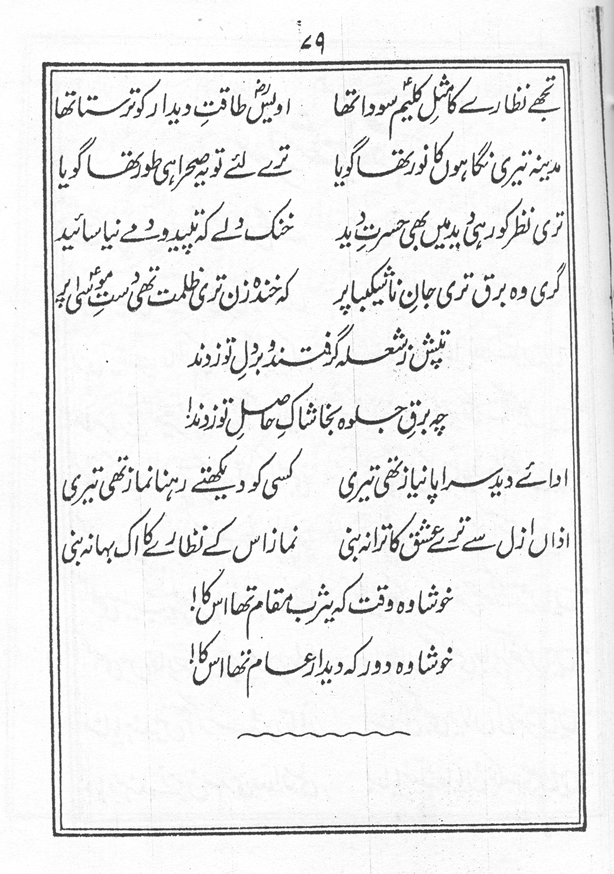 ۷۹
تجھے نظارے کا مثلِ کلیمؑ سودا تھا اویسؓ طاقتِ دیدار کو ترستا تھا
مدینہ تیری نگاہوں کا نور تھا گویا ترے لئے تو یہ صحرا ہی طور تھا گویا
تری نظر کو رہی دید میں بھی حسرتِ دید خنک دلے کہ تپید و دمے نیاسائید
گری وہ برق تری جانِ ناشکیبا پر کہ خندہ زن تری ظلمت تھی دستِ موسیٰؑ پر
تپش ز شعلہ گرفتند و بر دلِ تو زدند
چہ برقِ جلوہ بخاشاکِ حاصلِ تو زدند!
ادائے دید سراپا نیاز تھی تیری کسی کو دیکھتے رہنا نماز تھی تیری
اذاں ازل سے ترے عشق کا ترانہ بنی نماز اس کے نظارے کا اک بہانہ بنی
خوشا وہ وقت کہ یثرب مقام تھا اس کا!
خوشا وہ دور کہ دیدار عام تھا اس کا!